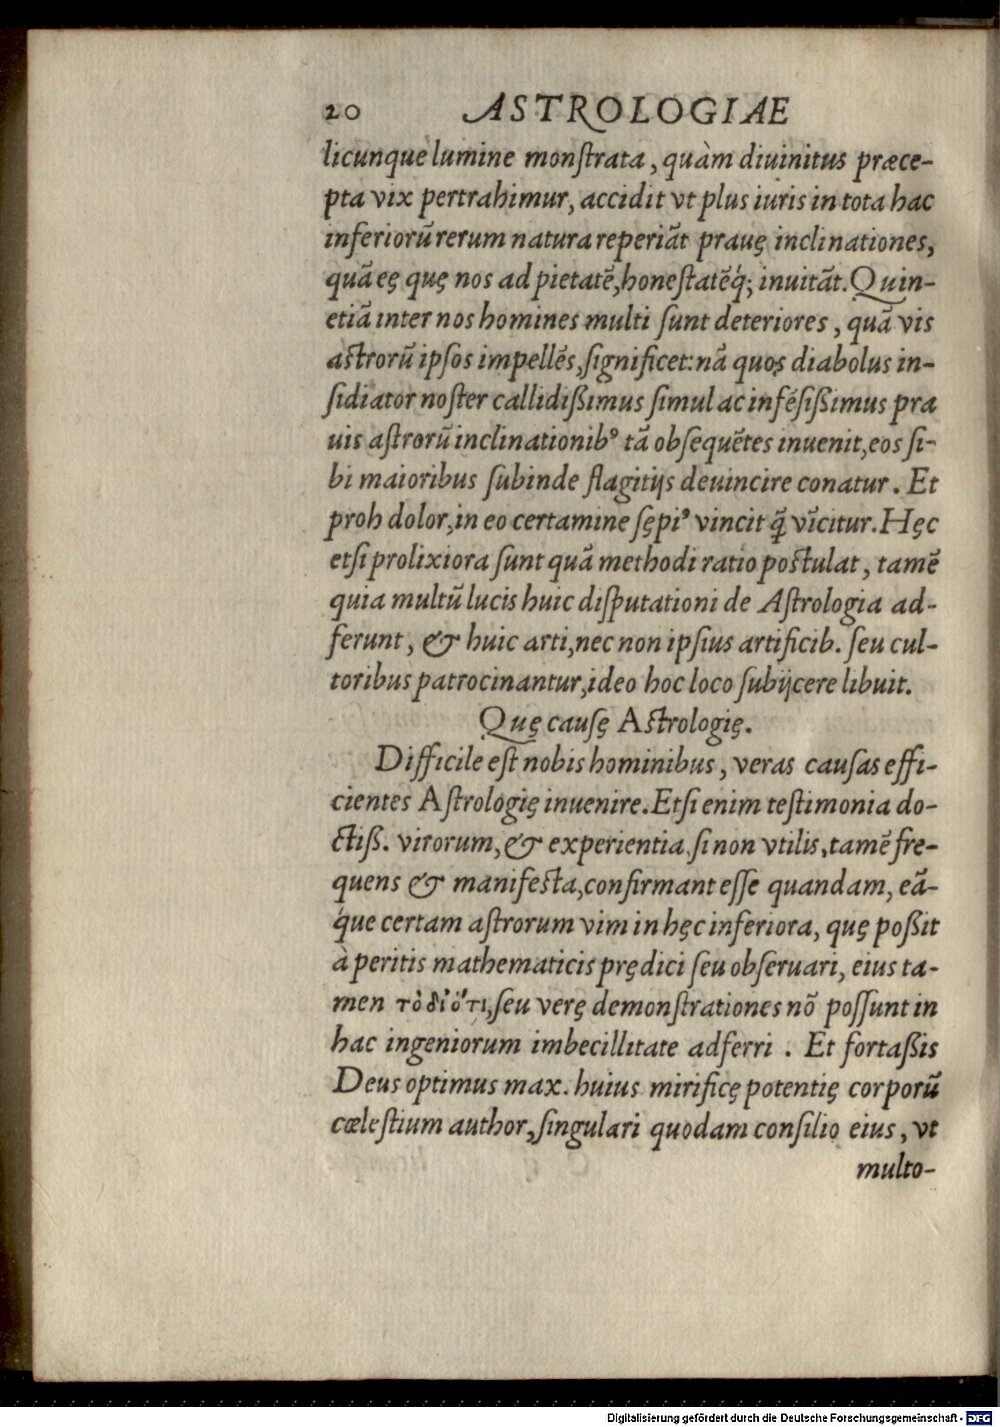 20 ASTROLOGIAE
licunque lumine monſtrata, quàm diuinitus præce-
pta vix pertrahimur, accidit vt plus iuris in tota hac
inferiorū rerum natura reperiāt prauę inclinationes,
quā eę quę nos ad pietatē, honeſtatēq́; inuitāt. Quin-
etiā inter nos homines multi ſunt deteriores, quā vis
aſtrorū ipſos impellēs, ſignificet: nā quos diabolus in-
ſidiator noſter callidißimus ſimul ac infēſißimus pra
uis aſtrorū inclinationibꝰ tā obſequētes inuenit, eos ſi-
bi maioribus ſubinde flagitijs deuincire conatur. Et
proh dolor, in eo certamine ſępiꝰ vincit q̄̃ vīcitur. Hęc
etſi prolixiora ſunt quā methodi ratio poſtulat, tamē
quia multū lucis huic diſputationi de Aſtrologia ad-
ferunt, & huic arti, nec non ipſius artificib. ſeu cul-
toribus patrocinantur, ideo hoc loco ſubijcere libuit.
Quę cauſę Aſtrologię.
Difficile eſt nobis hominibus, veras cauſas effi-
cientes Aſtrologię inuenire. Etſi enim teſtimonia do-
ctiß. virorum, & experientia, ſi non vtilis, tamē fre-
quens & manifeſta, confirmant eſſe quandam, eā-
q́ue certam aſtrorum vim in hęc inferiora, quę poßit
à peritis mathematicis prędici ſeu obſeruari, eius ta-
men τὸ διότι, ſeu verę demonſtrationes nō poſſunt in
hac ingeniorum imbecillitate adferri. Et fortaßis
Deus optimus max. huius mirificę potentię corporū
cœleſtium author, ſingulari quodam conſilio eius, vt
multo-
Digitalisierung gefördert durch die Deutsche Forschungsgemeinschaft - DFG